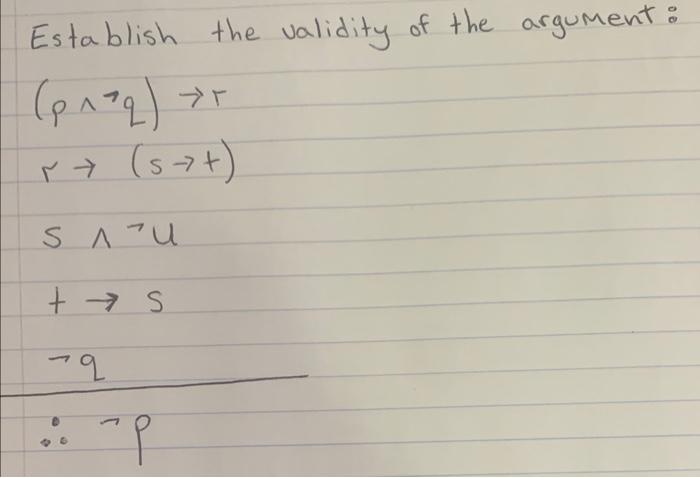 Establish the validity of the argument:
(p ∧ ¬q) → r
r → (s → t)
s ∧ ¬u
t → s
¬q
∴ ¬p